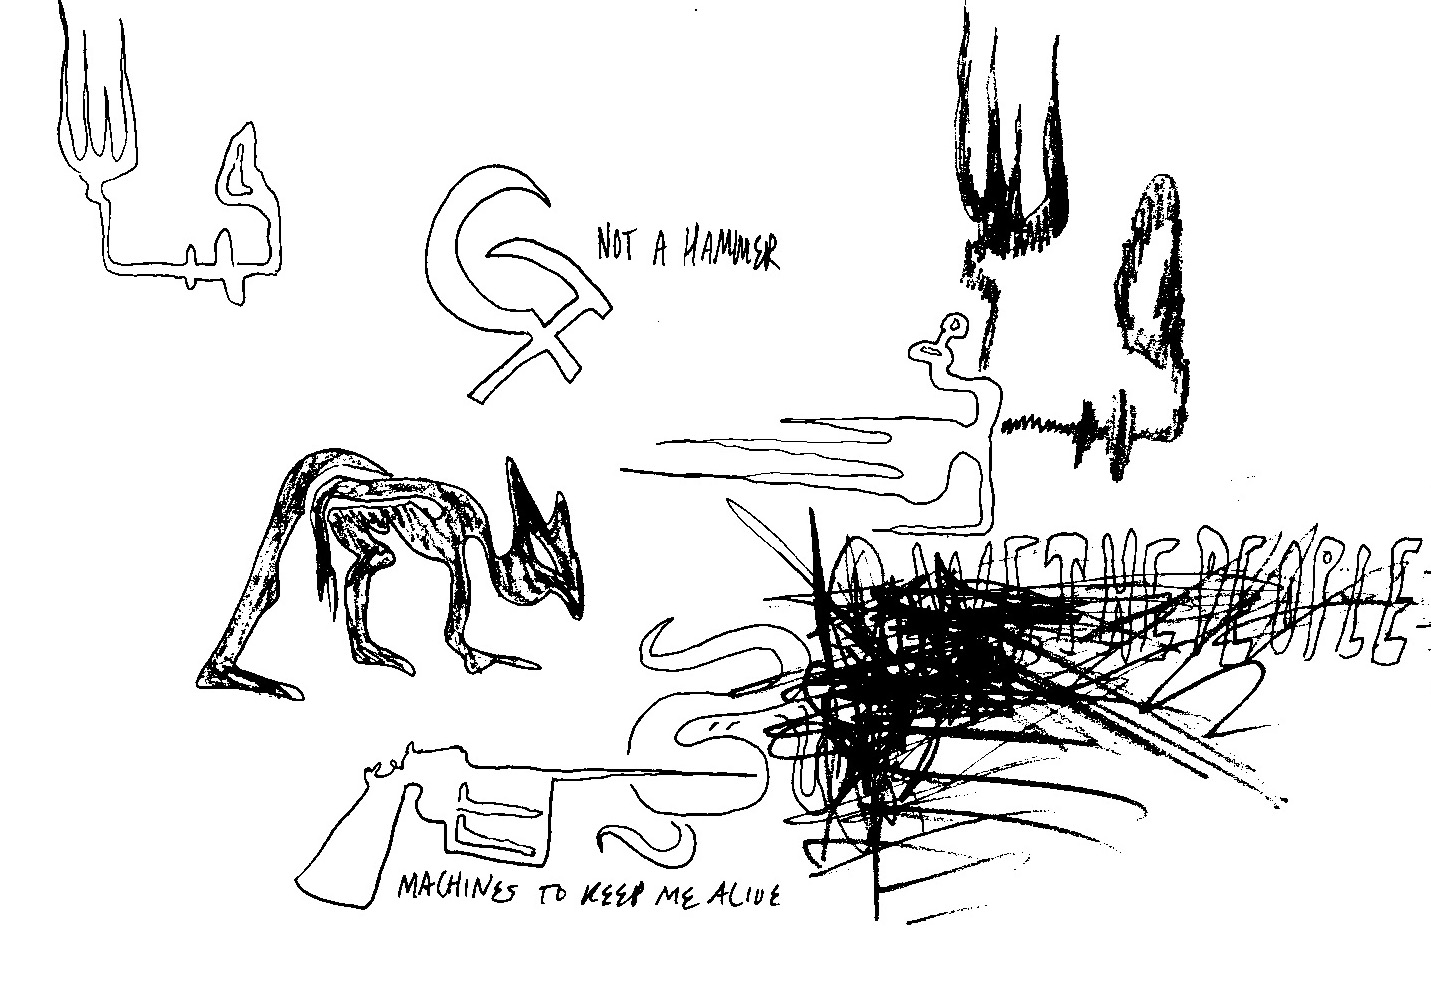 NOT A HAMMER
WE THE PEOPLE
MACHINES TO KEEP ME ALIVE